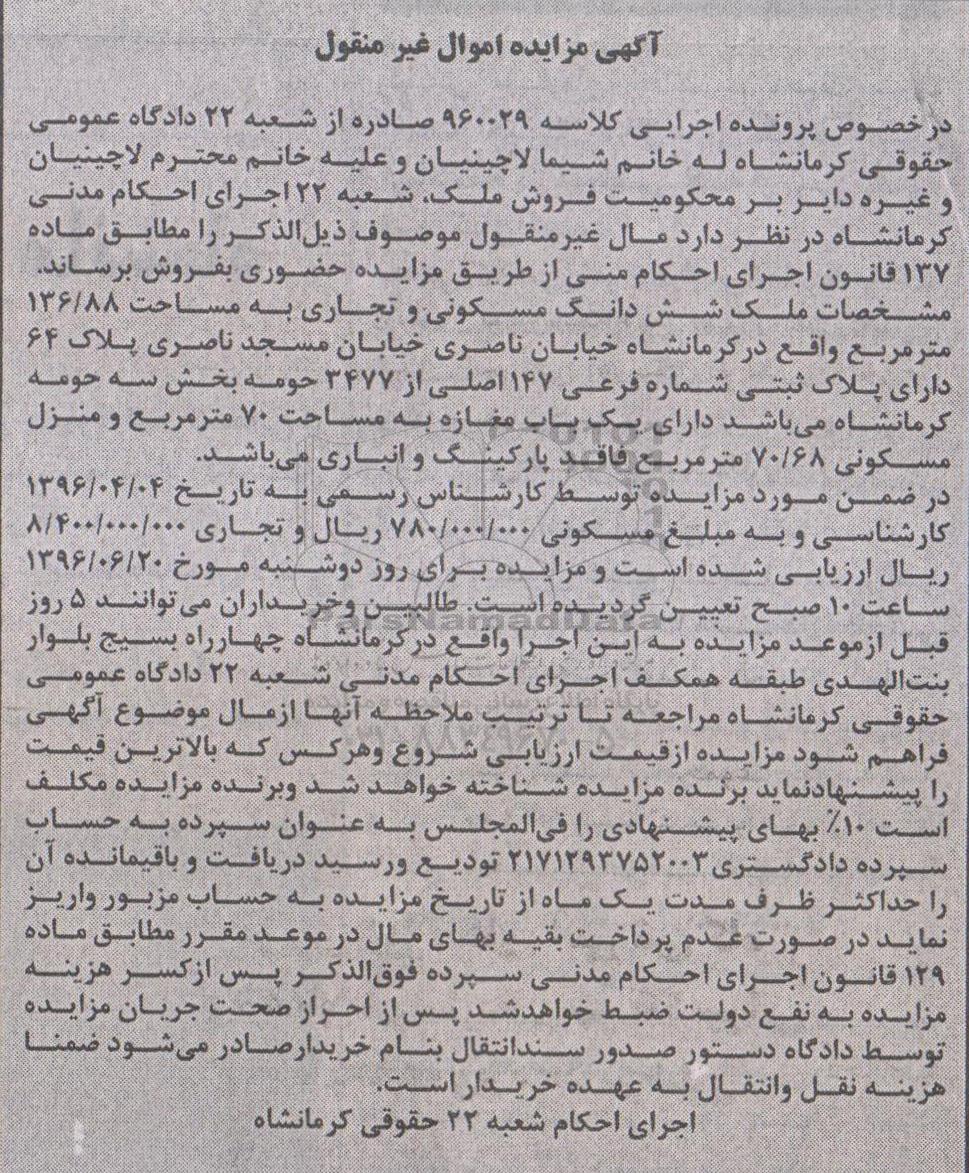 آگهی مزایده اموال غیر منقول
درخصوص پرونده اجرایی کلاسه ۹۶۰۰۲۹ صادره از شعبه ۲۲ دادگاه عمومی
حقوقی کرمانشاه له خانم شیما لاچینیان و علیه خانم محترم لاچینیان
و غیره دایر بر محکومیت فروش ملک، شعبه ۲۲ اجرای احکام مدنی
کرمانشاه در نظر دارد مال غیرمنقول موصوف ذیل‌الذکر را مطابق ماده
۱۳۷ قانون اجرای احکام منی از طریق مزایده حضوری بفروش برساند.
مشخصات ملک شش دانگ مسکونی و تجاری به مساحت ۱۳۶/۸۸
مترمربع واقع درکرمانشاه خیابان ناصری خیابان مسجد ناصری پلاک ۶۴
دارای پلاک ثبتی شماره فرعی ۱۴۷ اصلی از ۳۴۷۷ حومه بخش سه حومه
کرمانشاه می‌باشد دارای یک باب مغازه به مساحت ۷۰ مترمربع و منزل
مسکونی ۷۰/۶۸ مترمربع فاقد پارکینگ و انباری می‌باشد.
در ضمن مورد مزایده توسط کارشناس رسمی به تاریخ ۱۳۹۶/۰۴/۰۴
کارشناسی و به مبلغ مسکونی ۷۸۰/۰۰۰/۰۰۰ ریال و تجاری ۸/۴۰۰/۰۰۰/۰۰۰
ریال ارزیابی شده است و مزایده برای روز دوشنبه مورخ ۱۳۹۶/۰۶/۲۰
ساعت ۱۰ صبح تعیین گردیده است. طالبین وخریداران می‌توانند ۵ روز
قبل ازموعد مزایده به این اجرا واقع درکرمانشاه چهارراه بسیج بلوار
بنت‌الهدی طبقه همکف اجرای احکام مدنی شعبه ۲۲ دادگاه عمومی
حقوقی کرمانشاه مراجعه تا ترتیب ملاحظه آنها ازمال موضوع آگهی
فراهم شود مزایده ازقیمت ارزیابی شروع وهرکس که بالاترین قیمت
را پیشنهادنماید برنده مزایده شناخته خواهد شد وبرنده مزایده مکلف
است ۱۰٪ بهای پیشنهادی را فی‌المجلس به عنوان سپرده به حساب
سپرده دادگستری ۲۱۷۱۲۹۳۷۵۲۰۰۳ تودیع ورسید دریافت و باقیمانده آن
را حداکثر ظرف مدت یک ماه از تاریخ مزایده به حساب مزبور واریز
نماید در صورت عدم پرداخت بقیه بهای مال در موعد مقرر مطابق ماده
۱۲۹ قانون اجرای احکام مدنی سپرده فوق‌الذکر پس ازکسر هزینه
مزایده به نفع دولت ضبط خواهدشد پس از احراز صحت جریان مزایده
توسط دادگاه دستور صدور سندانتقال بنام خریدارصادر می‌شود ضمنا
هزینه نقل وانتقال به عهده خریدار است.
اجرای احکام شعبه ۲۲ حقوقی کرمانشاه
ParsNamadData